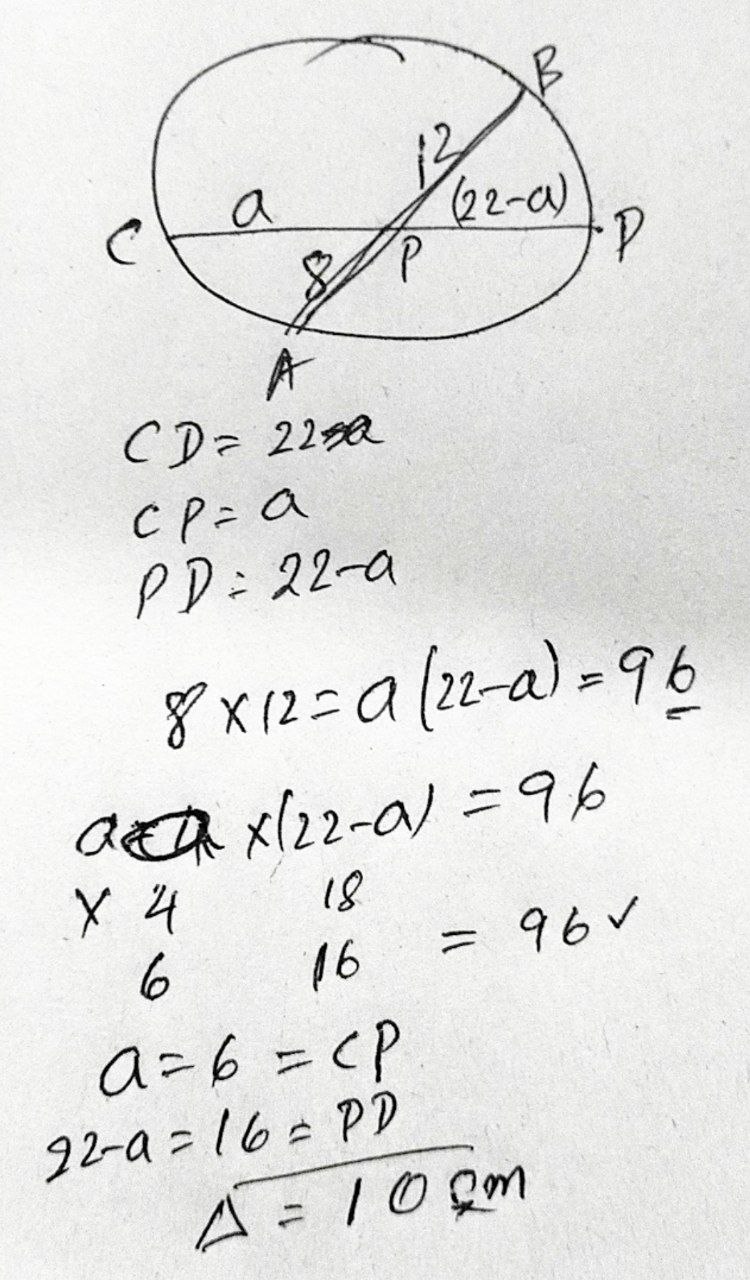 B
12
a
(22-a)
C
D
8
P
A
CD = 22
CP = a
PD = 22-a
8 x 12 = a (22-a) = 96
a x (22-a) = 96
x 4 18
6 16 = 96 ✓
a = 6 = CP
22-a = 16 = PD
Δ = 10 cm